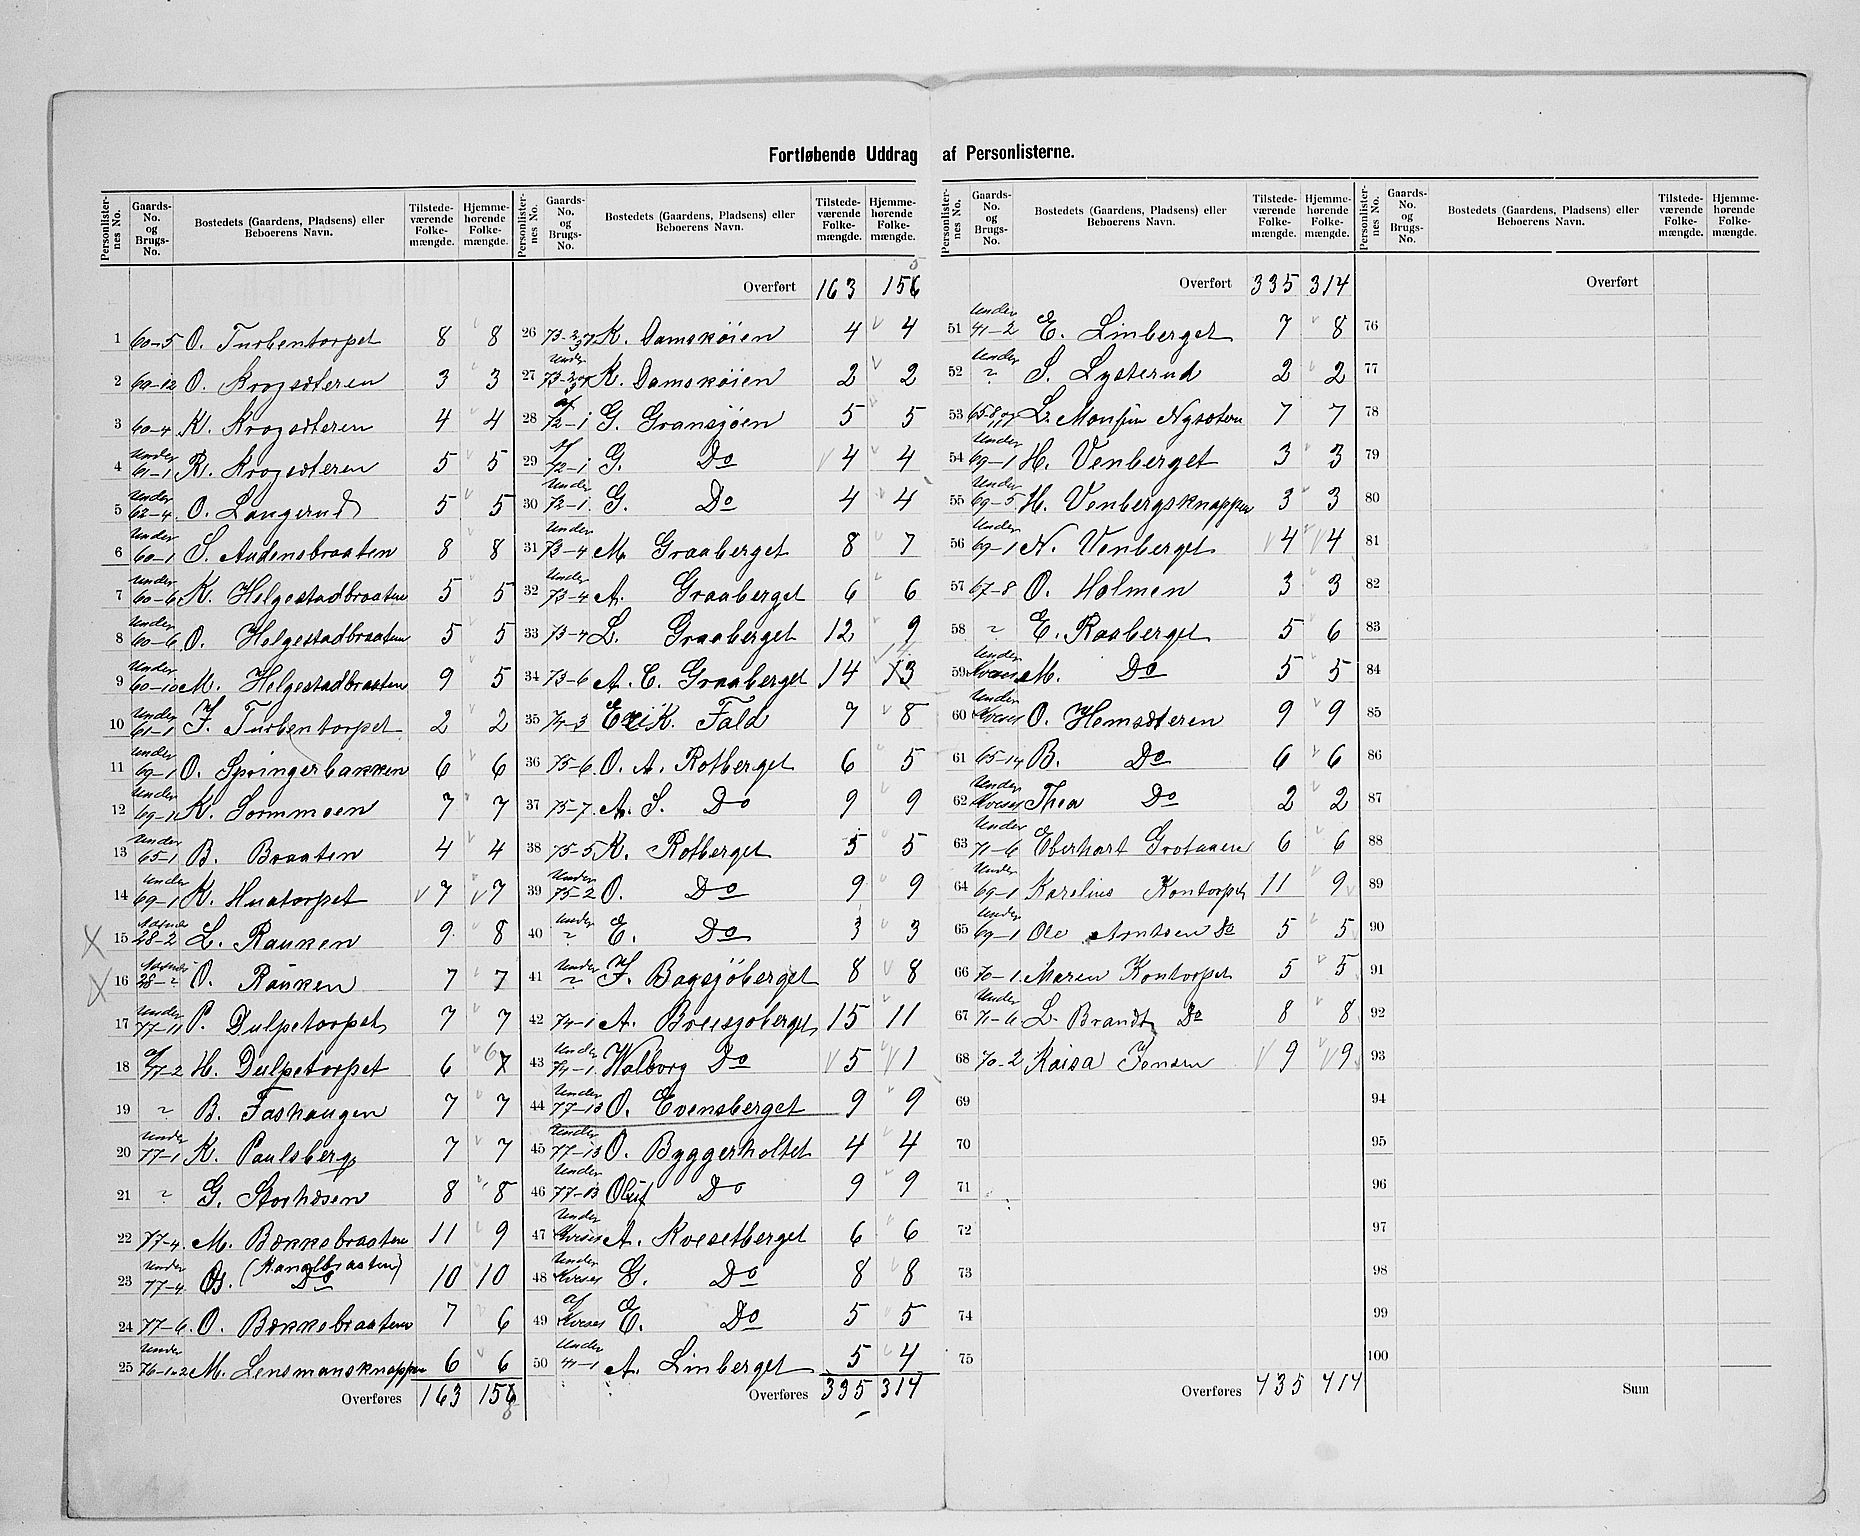 Fortløbende Uddrag af Personlisterne.
Personlister-nes No. Gaards-No. og Brugs-No. Bostedets (Gaardens, Pladsens) eller Beboerens Navn. Tilstede-værende Folke-mængde. Hjemme-hørende Folke-mængde.
1 60-5 O. Turbentorpet 8 8
2 60-12 O. Krogsæteren 3 3
3 60-4 K. Krogsæteren 4 4
4 Under 61-1 R. Krogsæteren 5 5
5 Under 62-4 O. Langerud 5 5
6 Under 60-1 S. Audensbraaten 8 8
7 Under 60-6 K. Helgestadbraaten 5 5
8 Under 60-6 O. Helgestadbraaten 5 5
9 Under 60-10 M. Helgestadbraaten 9 5
10 Under 61-1 F. Turbentorpet 2 2
11 Under 69-1 O. Springerbakken 6 6
12 Under 69-1 K. Sormmoen 7 7
13 Under 65-1 B. Braaten 4 4
14 Under 69-1 K. Huatorpet 7 7
X 15 28-2 L. Rauken 9 8
X 16 28-" O. Rauken 7 7
17 Under 77-11 P. Dulpetorpet 7 7
18 af 77-2 H. Dulpetorpet 6 6 7
19 " B. Fashaugen 7 7
20 Under 77-1 K. Paulsberg 7 7
21 " G. Storhæsen 8 8
22 77-4 M. Bækkebraaten 11 9
23 Under 77-4 (Kanalbraaten) Do 10 10
24 77-6 O. Bækkebraaten 7 6
25 Under 76-1-2 M. Lensmansknappen 6 6
Overføres 163 156
Personlister-nes No. Gaards-No. og Brugs-No. Bostedets (Gaardens, Pladsens) eller Beboerens Navn. Tilstede-værende Folke-mængde. Hjemme-hørende Folke-mængde.
Overført 163 156
26 73-2 K. Damskøien 4 4
27 Under K. Damskøien 2 2
28 af 72-1 G. Gransjøen 5 5
29 af 72-1 G. Do 4 4
30 Under 72-1 G. Do 4 4
31 Under 73-4 M. Graaberget 8 7
32 Under 73-4 A. Graaberget 6 6
33 73-4 L. Graaberget 12 9
34 73-6 A. E. Graaberget 14 14 13
35 74-3 Erik. Fald 7 8
36 75-6 O. A. Rotberget 6 5
37 75-7 A. S. Do 9 9
38 75-5 K. Rotberget 5 5
39 Under 75-2 O. Do 9 9
40 Under " E. Do 3 3
41 Under " F. Bagsjöberget 8 8
42 74-1 A. Breisjoberget 15 11
43 Under 74-1 Walborg Do 5 1
44 Under 77-13 O. Evensberget 9 9
45 Under 77-13 O. Byggerholtet 4 4
46 Under 77-13 Oluf Do 9 9
47 Under Kveset A. Kvesetberget 6 6
48 Under Kveset G. Do 8 8
49 af Kveset E. Do 5 5
50 Under 41-1 A. Linberget 5 4
Overføres 335 314
Personlister-nes No. Gaards-No. og Brugs-No. Bostedets (Gaardens, Pladsens) eller Beboerens Navn. Tilstede-værende Folke-mængde. Hjemme-hørende Folke-mængde.
Overført 335 314
51 Under 41-2 E. Linberget 7 8
52 Under " S. Lysterud 2 2
53 65-8 L. Nysæteren 7 7
54 Under 69-1 H. Venberget 3 3
55 Under 69-5 H. Venbergsknappen 3 3
56 Under 69-1 N. Venberget 4 4
57 67-8 O. Holmen 3 3
58 " E. Raaberget 5 6
59 Under Kveset M. Do 5 5
60 Under Kveset O. Hemsæteren 9 9
61 65-14 B. Do 6 6
62 Under Kveset Thea Do 2 2
63 Under 71-6 Eberhart Grotaaen 6 6
64 Under 69-1 Karelius Kontorpet 11 9
65 Under 69-1 Ole Arntsen Do 5 5
66 70-1 Maren Kontorpet 5 5
67 Under 71-6 L. Brandt Do 8 8
68 70-2 Kaisa Jensen 9 9
69
70
71
72
73
74
75
Overføres 435 414
Personlister-nes No. Gaards-No. og Brugs-No. Bostedets (Gaardens, Pladsens) eller Beboerens Navn. Tilstede-værende Folke-mængde. Hjemme-hørende Folke-mængde.
Overført
76
77
78
79
80
81
82
83
84
85
86
87
88
89
90
91
92
93
94
95
96
97
98
99
100
Sum